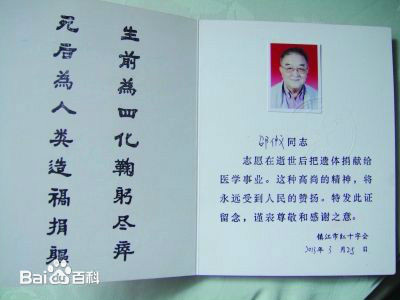 生前為四化鞠躬尽瘁
死后為人类造福捐躯
邵 同志
志愿在逝世后把遗体捐献给
医学事业。这种高尚的精神，将
永远受到人民的赞扬。特发此证
留念，谨表尊敬和感谢之意。
镇江市红十字会
年 3 月 25 日
Bai百科